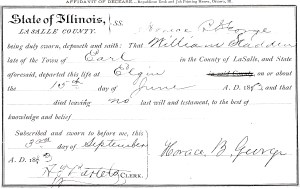 AFFIDAVIT OF DECEASE.
State of Illinois, SS.
LA SALLE COUNTY. Horace B George
being duly sworn, deposeth and saith: That William Fladden
late of the Town of Earl in the County of LaSalle, and State
aforesaid, departed this life at Elgin
the 15th day of June A. D. 18 3 and that
died leaving no last will and testament, to the best of
knowledge and belief
Subscribed and sworn to before me, this
3rd day of September Horace B George
A. D. 18 3
CLERK.